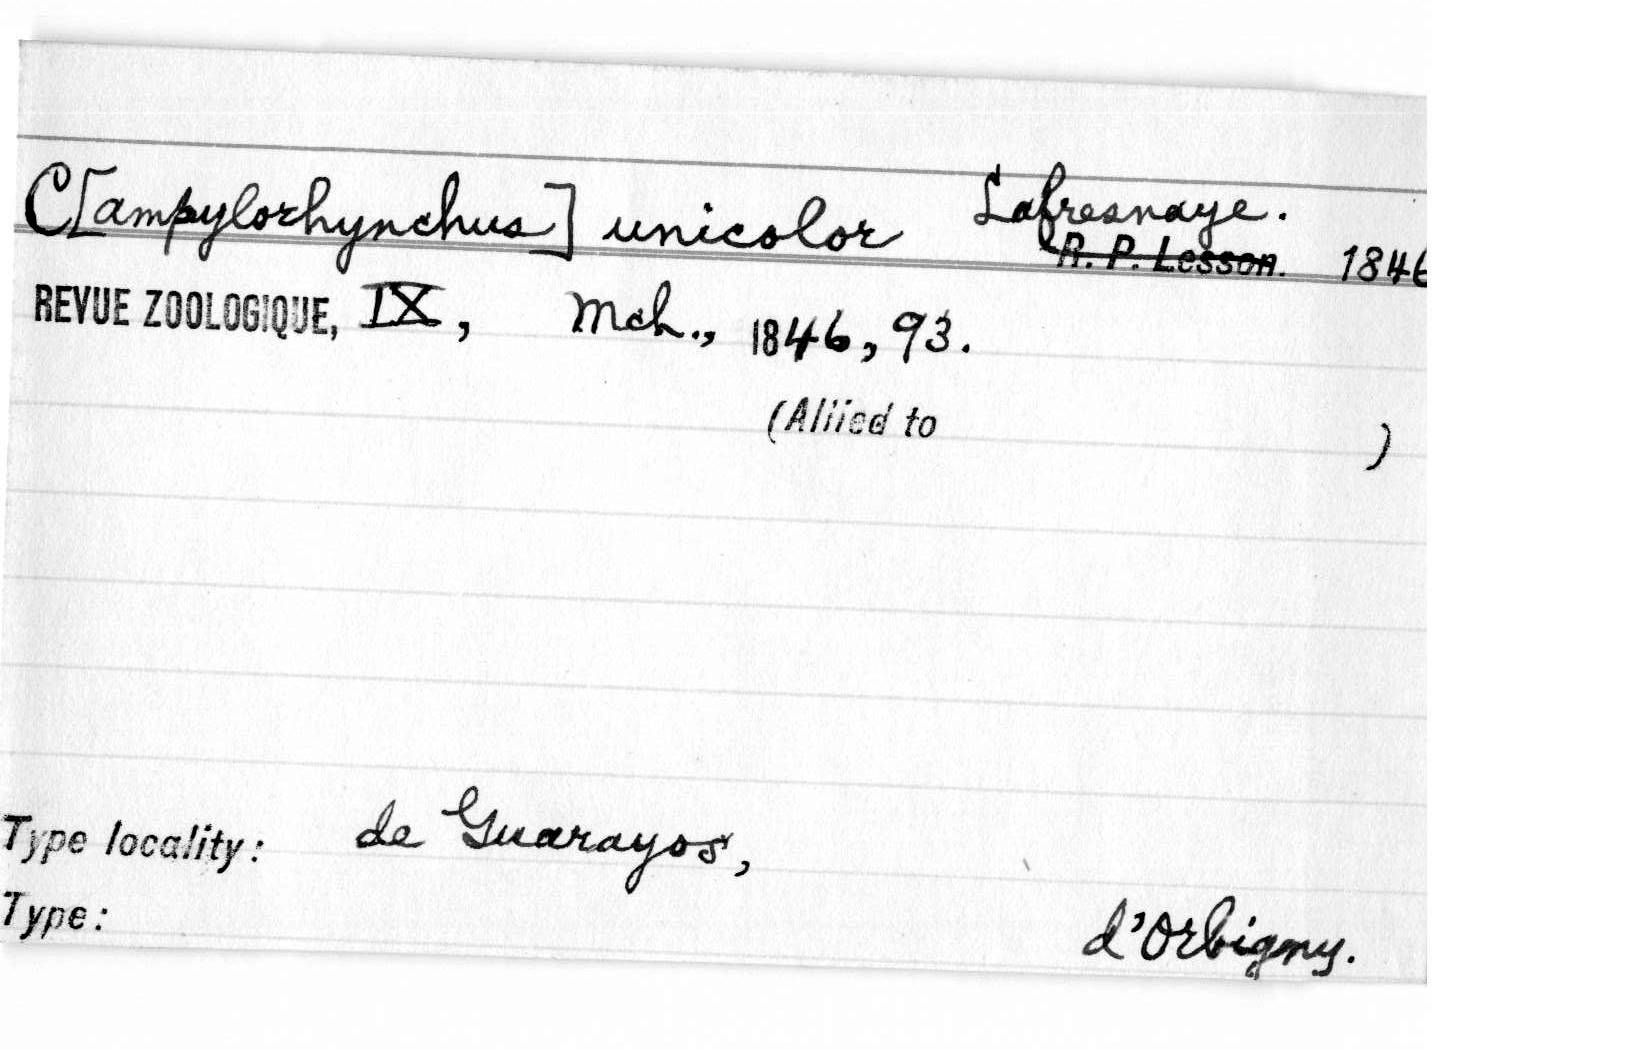 C[ampylorhynchus] unicolor Lafresnaye.
R. P. Lesson. 1846
REVUE ZOOLOGIQUE, IX, Mch., 1846, 93.
(Allied to )
Type locality: de Guarayos,
Type: d'Orbigny.